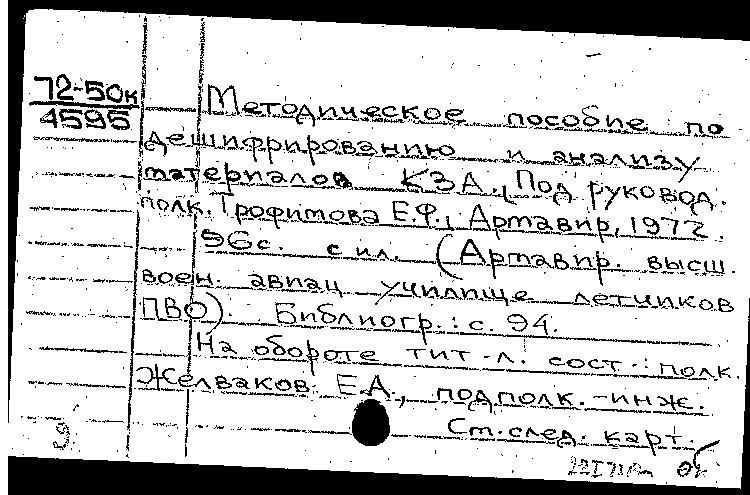 72-50к
4595
Методическое пособие по
дешифрированию и анализу
материалов КЗА. Под руковод.
полк. Трофимова Е.Ф., Армавир, 1972.
96с. с ил. (Армавир. высш.
воен. авиац училище летчиков
ПВО). Библиогр.: с. 94.
На обороте тит. л. сост.: полк.
Желваков Е.А., подполк.-инж.
См. след. карт.
9